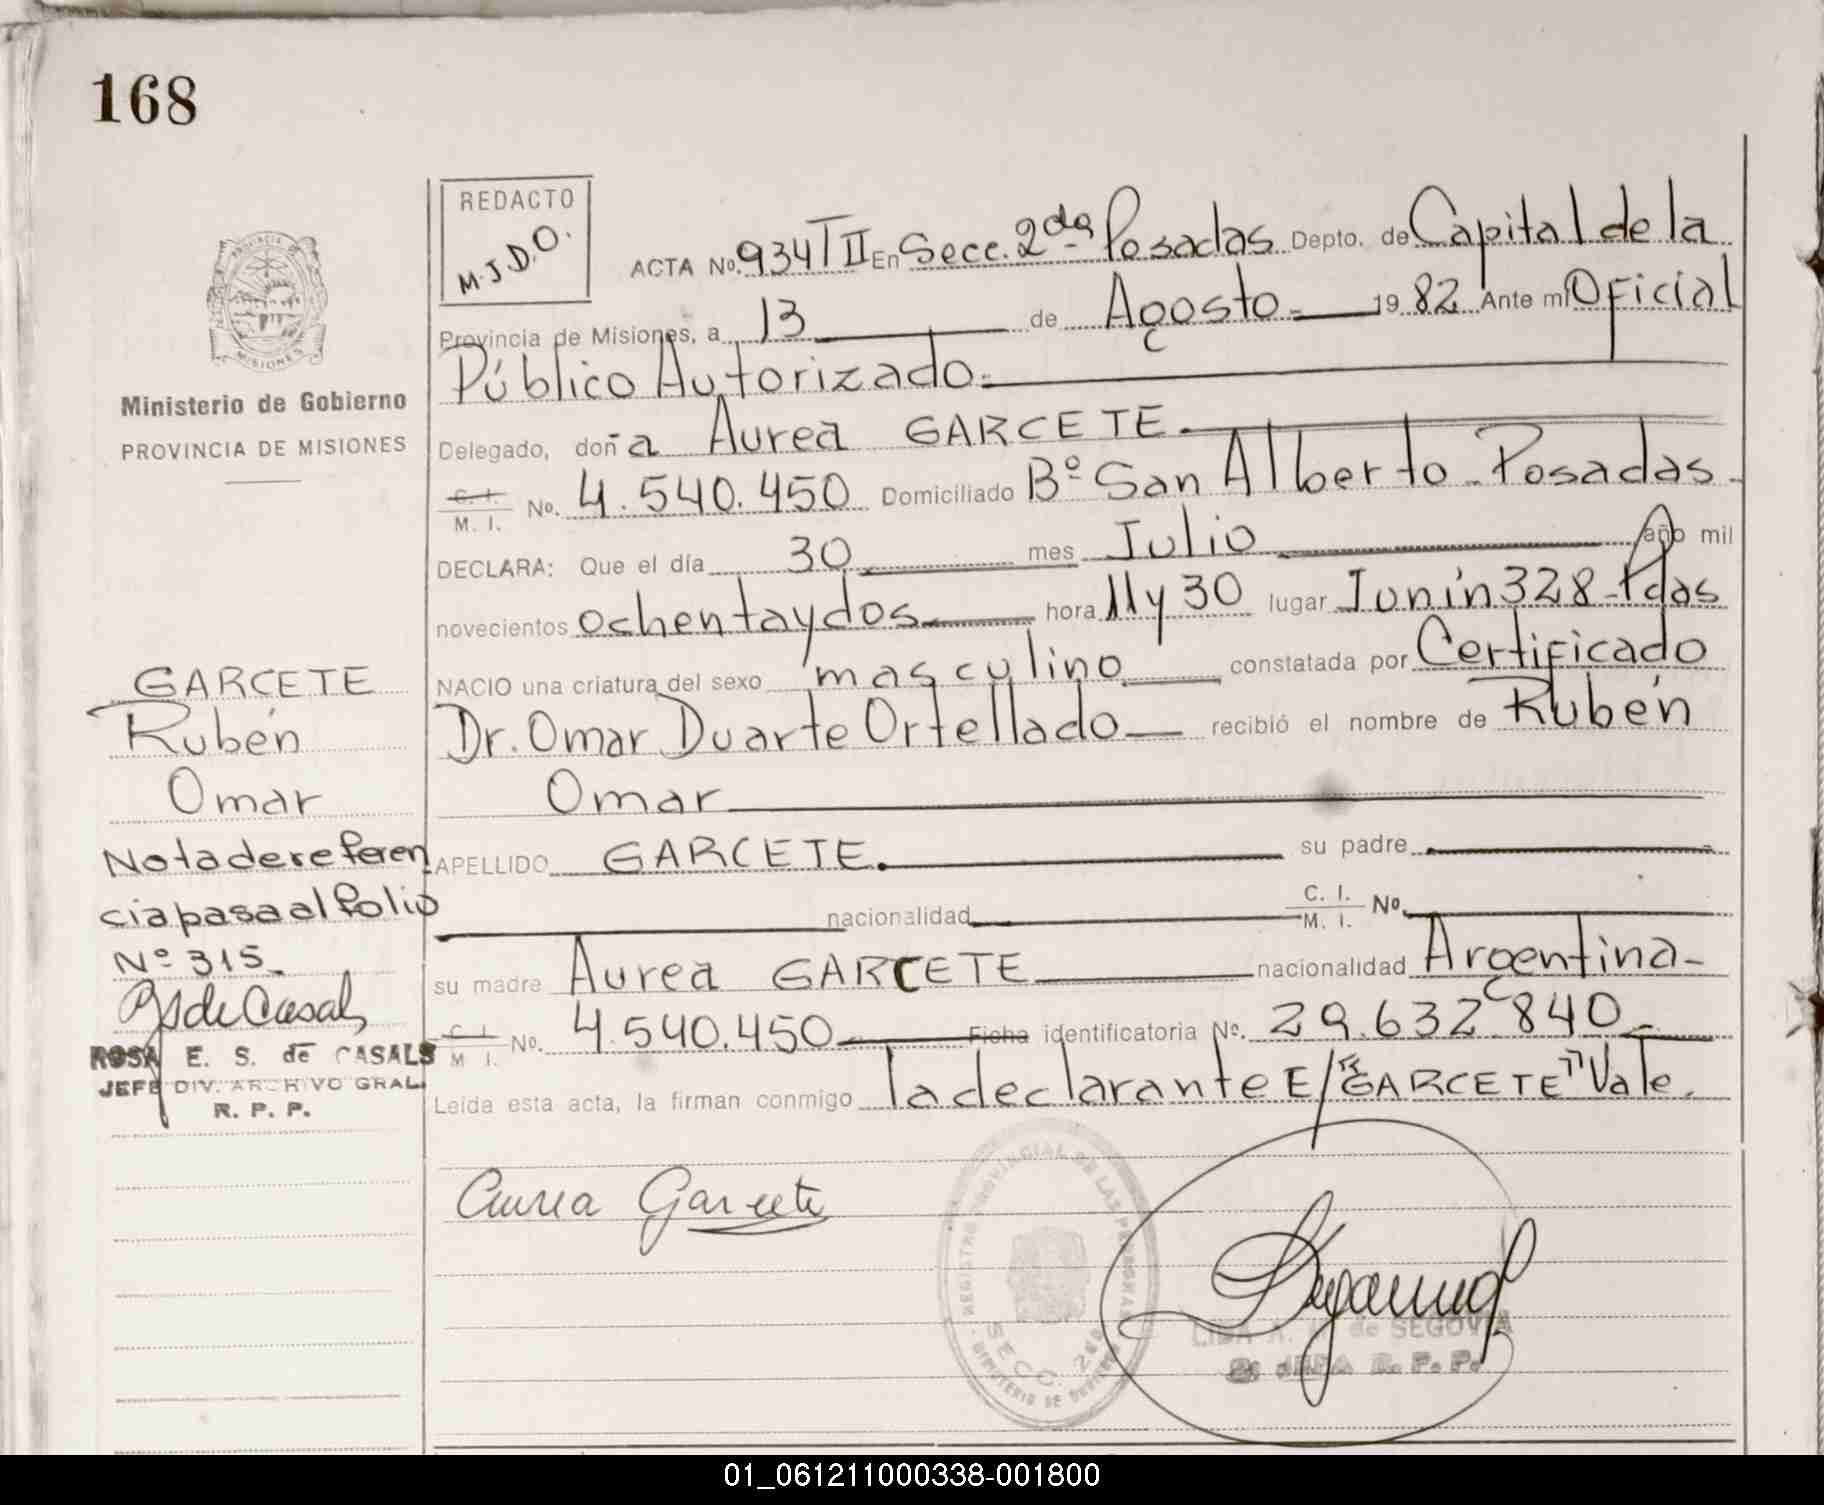 168
REDACTO
M.J.D.O.
ACTA No. 934 T II En Secc. 2da Posadas Depto. de Capital de la
Provincia de Misiones, a 13 de Agosto 1982 Ante mi Oficial
Público Autorizado.
Delegado, doña Aurea GARCETE.
C. I.
M. I. No. 4.540.450 Domiciliado Bº San Alberto - Posadas -
DECLARA: Que el día 30 mes Julio año mil
novecientos ochentaydos hora 11 y 30 lugar Junín 328 - Pdas
NACIO una criatura del sexo masculino constatada por Certificado
Dr. Omar Duarte Ortellado recibió el nombre de Rubén
Omar
APELLIDO GARCETE. su padre
nacionalidad C. I.
M. I. No.
su madre Aurea GARCETE nacionalidad Argentina -
C. I.
M. I. No. 4.540.450 Ficha identificatoria No. 29.632.840
Leída esta acta, la firman conmigo la declarante E/ "GARCETE" Vale.
Aurea Garcete
REGISTRO PROVINCIAL DE LAS PERSONAS
SECC. 2da
MINISTERIO DE GOBIERNO
de SEGOVIA
JEFA R. P. P.
PROVINCIA DE
MISIONES
Ministerio de Gobierno
PROVINCIA DE MISIONES
GARCETE
Rubén
Omar
Nota de referen
cia pasa al folio
Nº 315
RSdeCasals
ROSA E. S. de CASALS
JEFE DIV. ARCHIVO GRAL.
R. P. P.
01_061211000338-001800